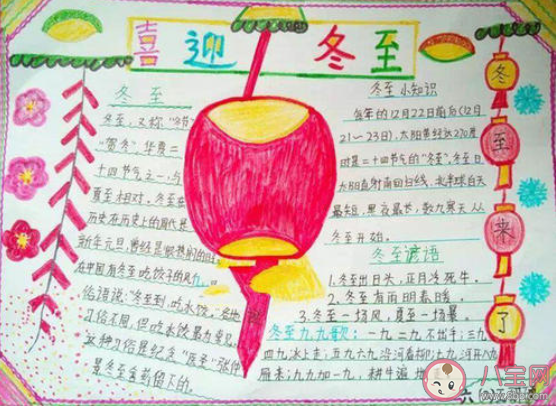 喜迎冬至
冬至
冬至,又称"冬节"
"贺冬",华夏二
十四节气之一,与
夏至相对。冬至在
历史上的周代是
新年元旦,曾经是
在中国有冬至吃饺子的风
俗。俗语说:"冬至到,吃水饺。"
习俗不同,但吃水饺最为常见
这种习俗是纪念"医圣"张仲
景冬至舍药留下的。
冬至小知识
每年的12月22日前后(12月
21~23日),太阳黄经达270度
时是二十四节气的"冬至",冬至日
太阳直射南回归线,北半球白天
最短,黑夜最长,数九寒天从
冬至开始。
冬至谚语
1.冬至出日头,正月冷死牛。
2.冬至有雨明春暖。
3.冬至一场风,夏至一场暴。
冬至九九歌:一九二九不出手;三九
四九冰上走;五九六九沿河看柳;七九河开八九
雁来;九九加一九,耕牛遍地
冬至来了
八宝网